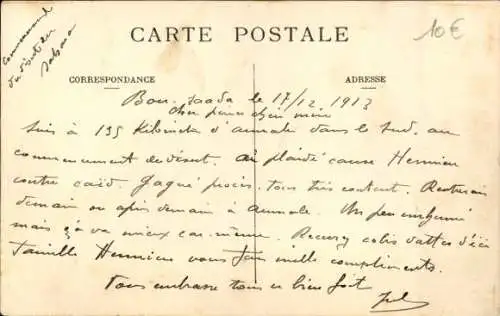 Commencement
du désert du
Sahara
10€
CARTE POSTALE
CORRESPONDANCE
ADRESSE
Bou-Saada le 17/12 1913
cher père chère mère
Suis à 135 d'Aumale dans le Sud, au
commencement de désert. Ai plaidé cause Hennion
contre caïd. Gagné procès. tous très content. Rentrerai
demain ou après demain à Aumale. Un peu enrhumé
mais ça va mieux car même. Recevez colis dattes d'ici
famille Hennion vous fait mille compliments.
Vous embrasse tous et bien fort